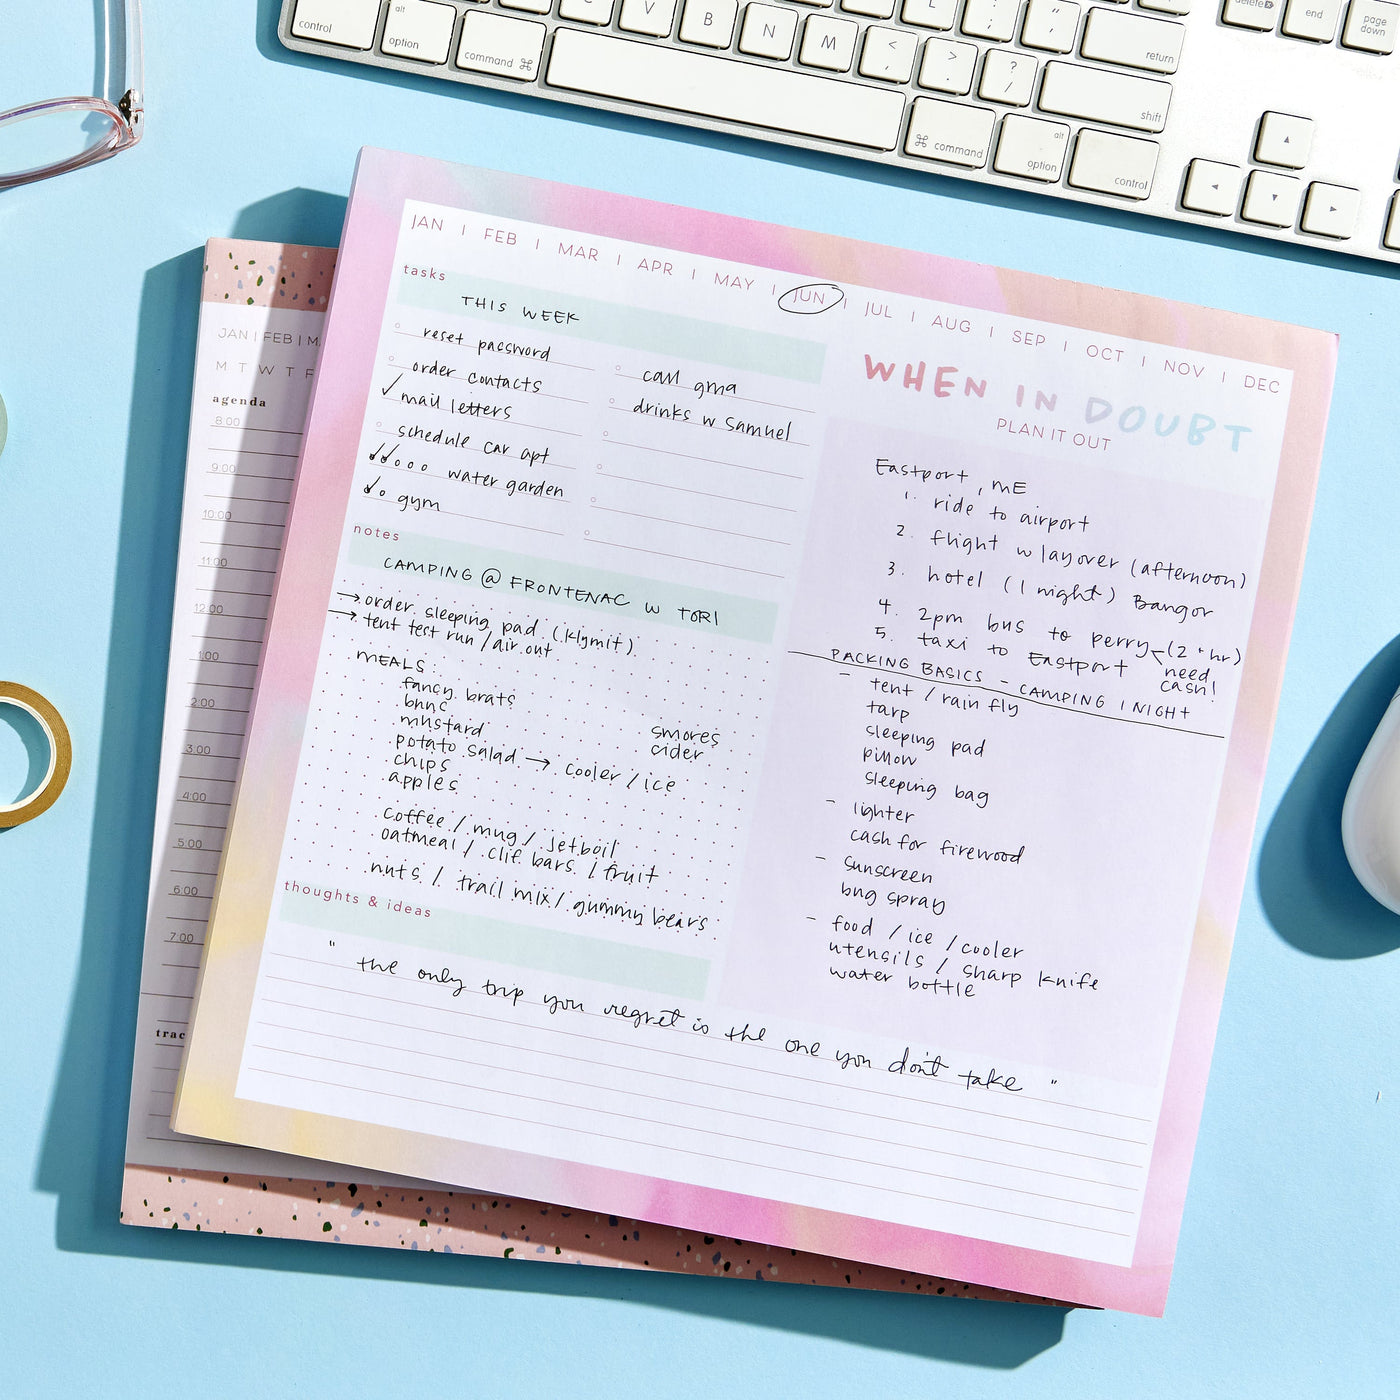 control
alt
option
command ⌘
C
V
B
N
M
<
,
>
.
?
/
L
:
;
"
'
return
shift
⌘ command
alt
option
control
delete
end
page
down
JAN | FEB | MAR | APR | MAY | JUN | JUL | AUG | SEP | OCT | NOV | DEC
tasks
THIS WEEK
reset password
order contacts
✓ mail letters
schedule car apt
water garden
gym
call gma
drinks w Samuel
notes
CAMPING @ FRONTENAC W TORI
→ order sleeping pad (klymit)
→ tent test run / air out
MEALS:
fancy brats
buns
mustard
potato salad → cooler / ice
chips
apples
smores
cider
coffee / mug / jetboil
oatmeal / clif bars / fruit
nuts / trail mix / gummy bears
thoughts & ideas
" the only trip you regret is the one you don't take "
WHEN IN DOUBT
PLAN IT OUT
Eastport, ME
1. ride to airport
2. flight w layover (afternoon)
3. hotel (1 night) Bangor
4. 2pm bus to perry (2+hr)
5. taxi to Eastport
need
cash!
PACKING BASICS - CAMPING 1 NIGHT
- tent / rain fly
tarp
sleeping pad
pillow
sleeping bag
- lighter
cash for firewood
- sunscreen
bug spray
- food / ice / cooler
utensils / sharp knife
water bottle
JAN | FEB | M
M T W T F
agenda
8:00
9:00
10:00
11:00
12:00
1:00
2:00
3:00
4:00
5:00
6:00
7:00
trac